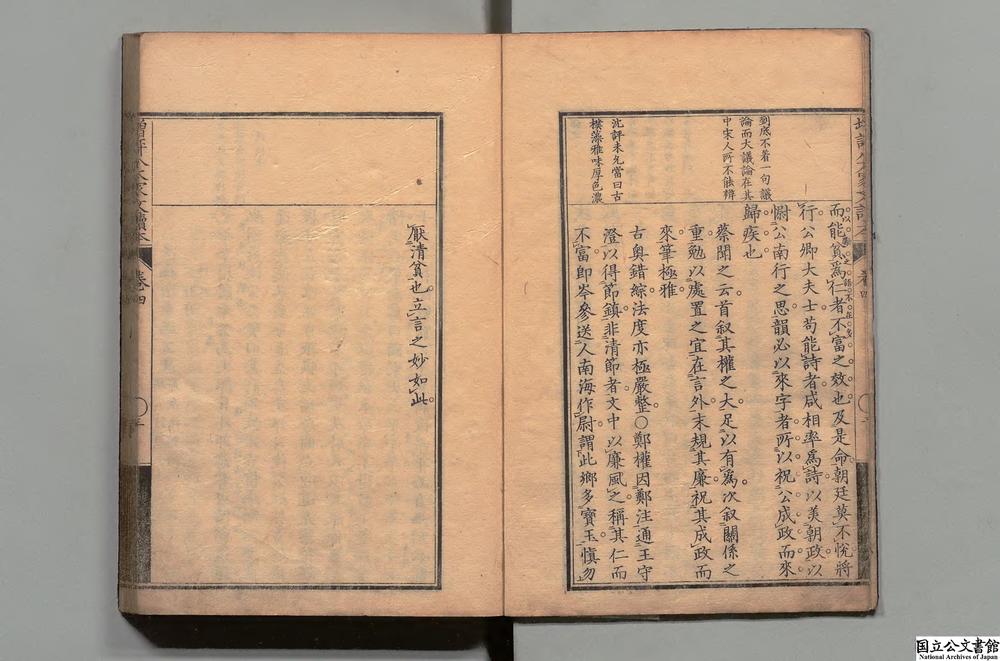 到底不着一句議
論而大議論在其
中宋人所不能辨
沈評未允當曰古
樸藻雅味厚色濃
而能貧爲仁者不富之效也及是命朝廷莫不悅將
行公卿大夫士苟能詩者咸相率爲詩以美朝政以
慰公南行之思韻必以來字者所以祝公成政而來
歸疾也
蔡聞之云首叙其權之大足以有爲次叙關係之
重勉以處置之宜在言外末規其廉祝其成政而
來筆極雅
古奧錯綜法度亦極嚴整○鄭權因鄭注通王守
澄以得節鎮非清節者文中以廉風之稱其仁而
不富卽岑參送人南海作尉謂此鄉多寶玉愼勿
厭清貧也立言之妙如此
增評八大家文讀本 卷四
国立公文書館
National Archives of Japan